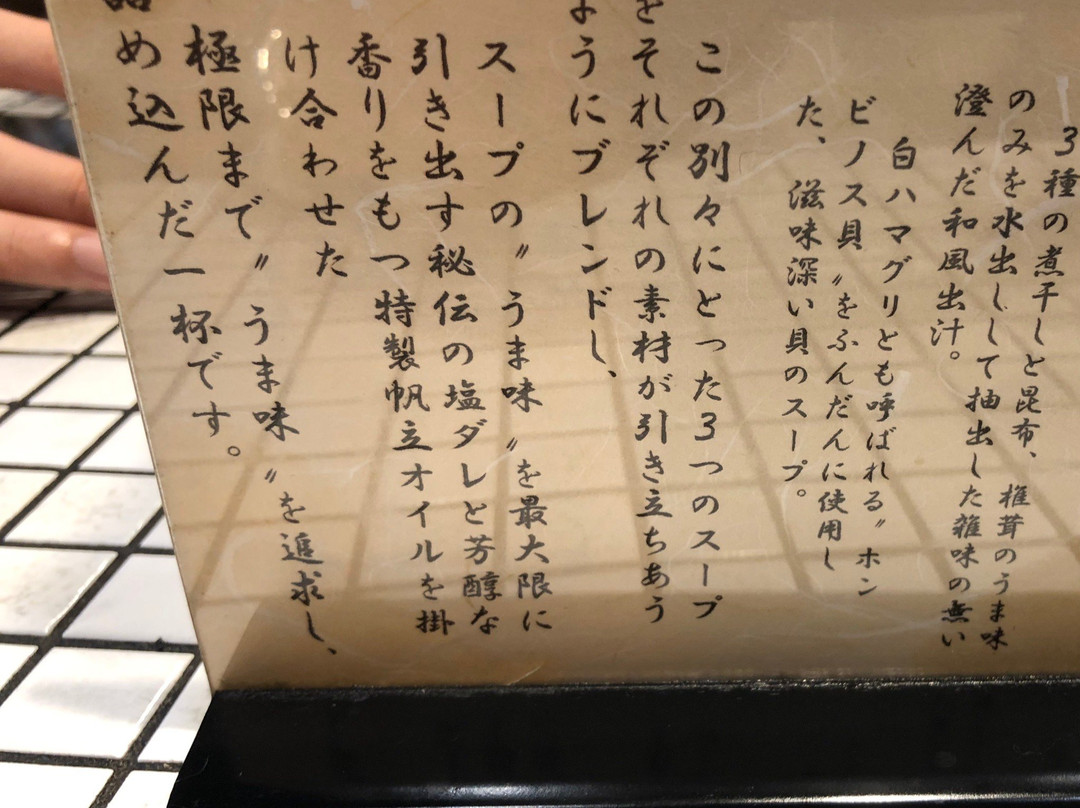 ３種の煮干しと昆布、椎茸のうま味
のみを水出しして抽出した雑味の無い
澄んだ和風出汁。
白ハマグリとも呼ばれる〃ホン
ビノス貝〃をふんだんに使用し
た、滋味深い貝のスープ。
この別々にとった３つのスープ
をそれぞれの素材が引き立ちあう
ようにブレンドし、
スープの〃うま味〃を最大限に
引き出す秘伝の塩ダレと芳醇な
香りをもつ特製帆立オイルを掛
け合わせた
極限まで〃うま味〃を追求し、
詰め込んだ一杯です。